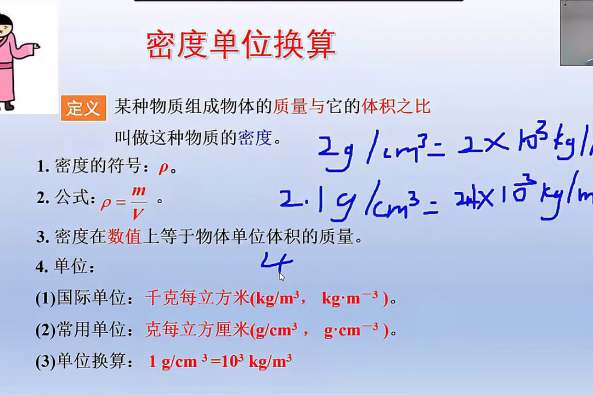 密度单位换算
定义 某种物质组成物体的质量与它的体积之比
叫做这种物质的密度。
2g/cm³=2×10³kg/
1. 密度的符号：ρ。
2. 公式：ρ=m/V。
2.1g/cm³= ×10³kg/m
3. 密度在数值上等于物体单位体积的质量。
4. 单位：
4
(1)国际单位：千克每立方米(kg/m³， kg·m⁻³)。
(2)常用单位：克每立方厘米(g/cm³， g·cm⁻³)。
(3)单位换算： 1 g/cm ³ =10³ kg/m³